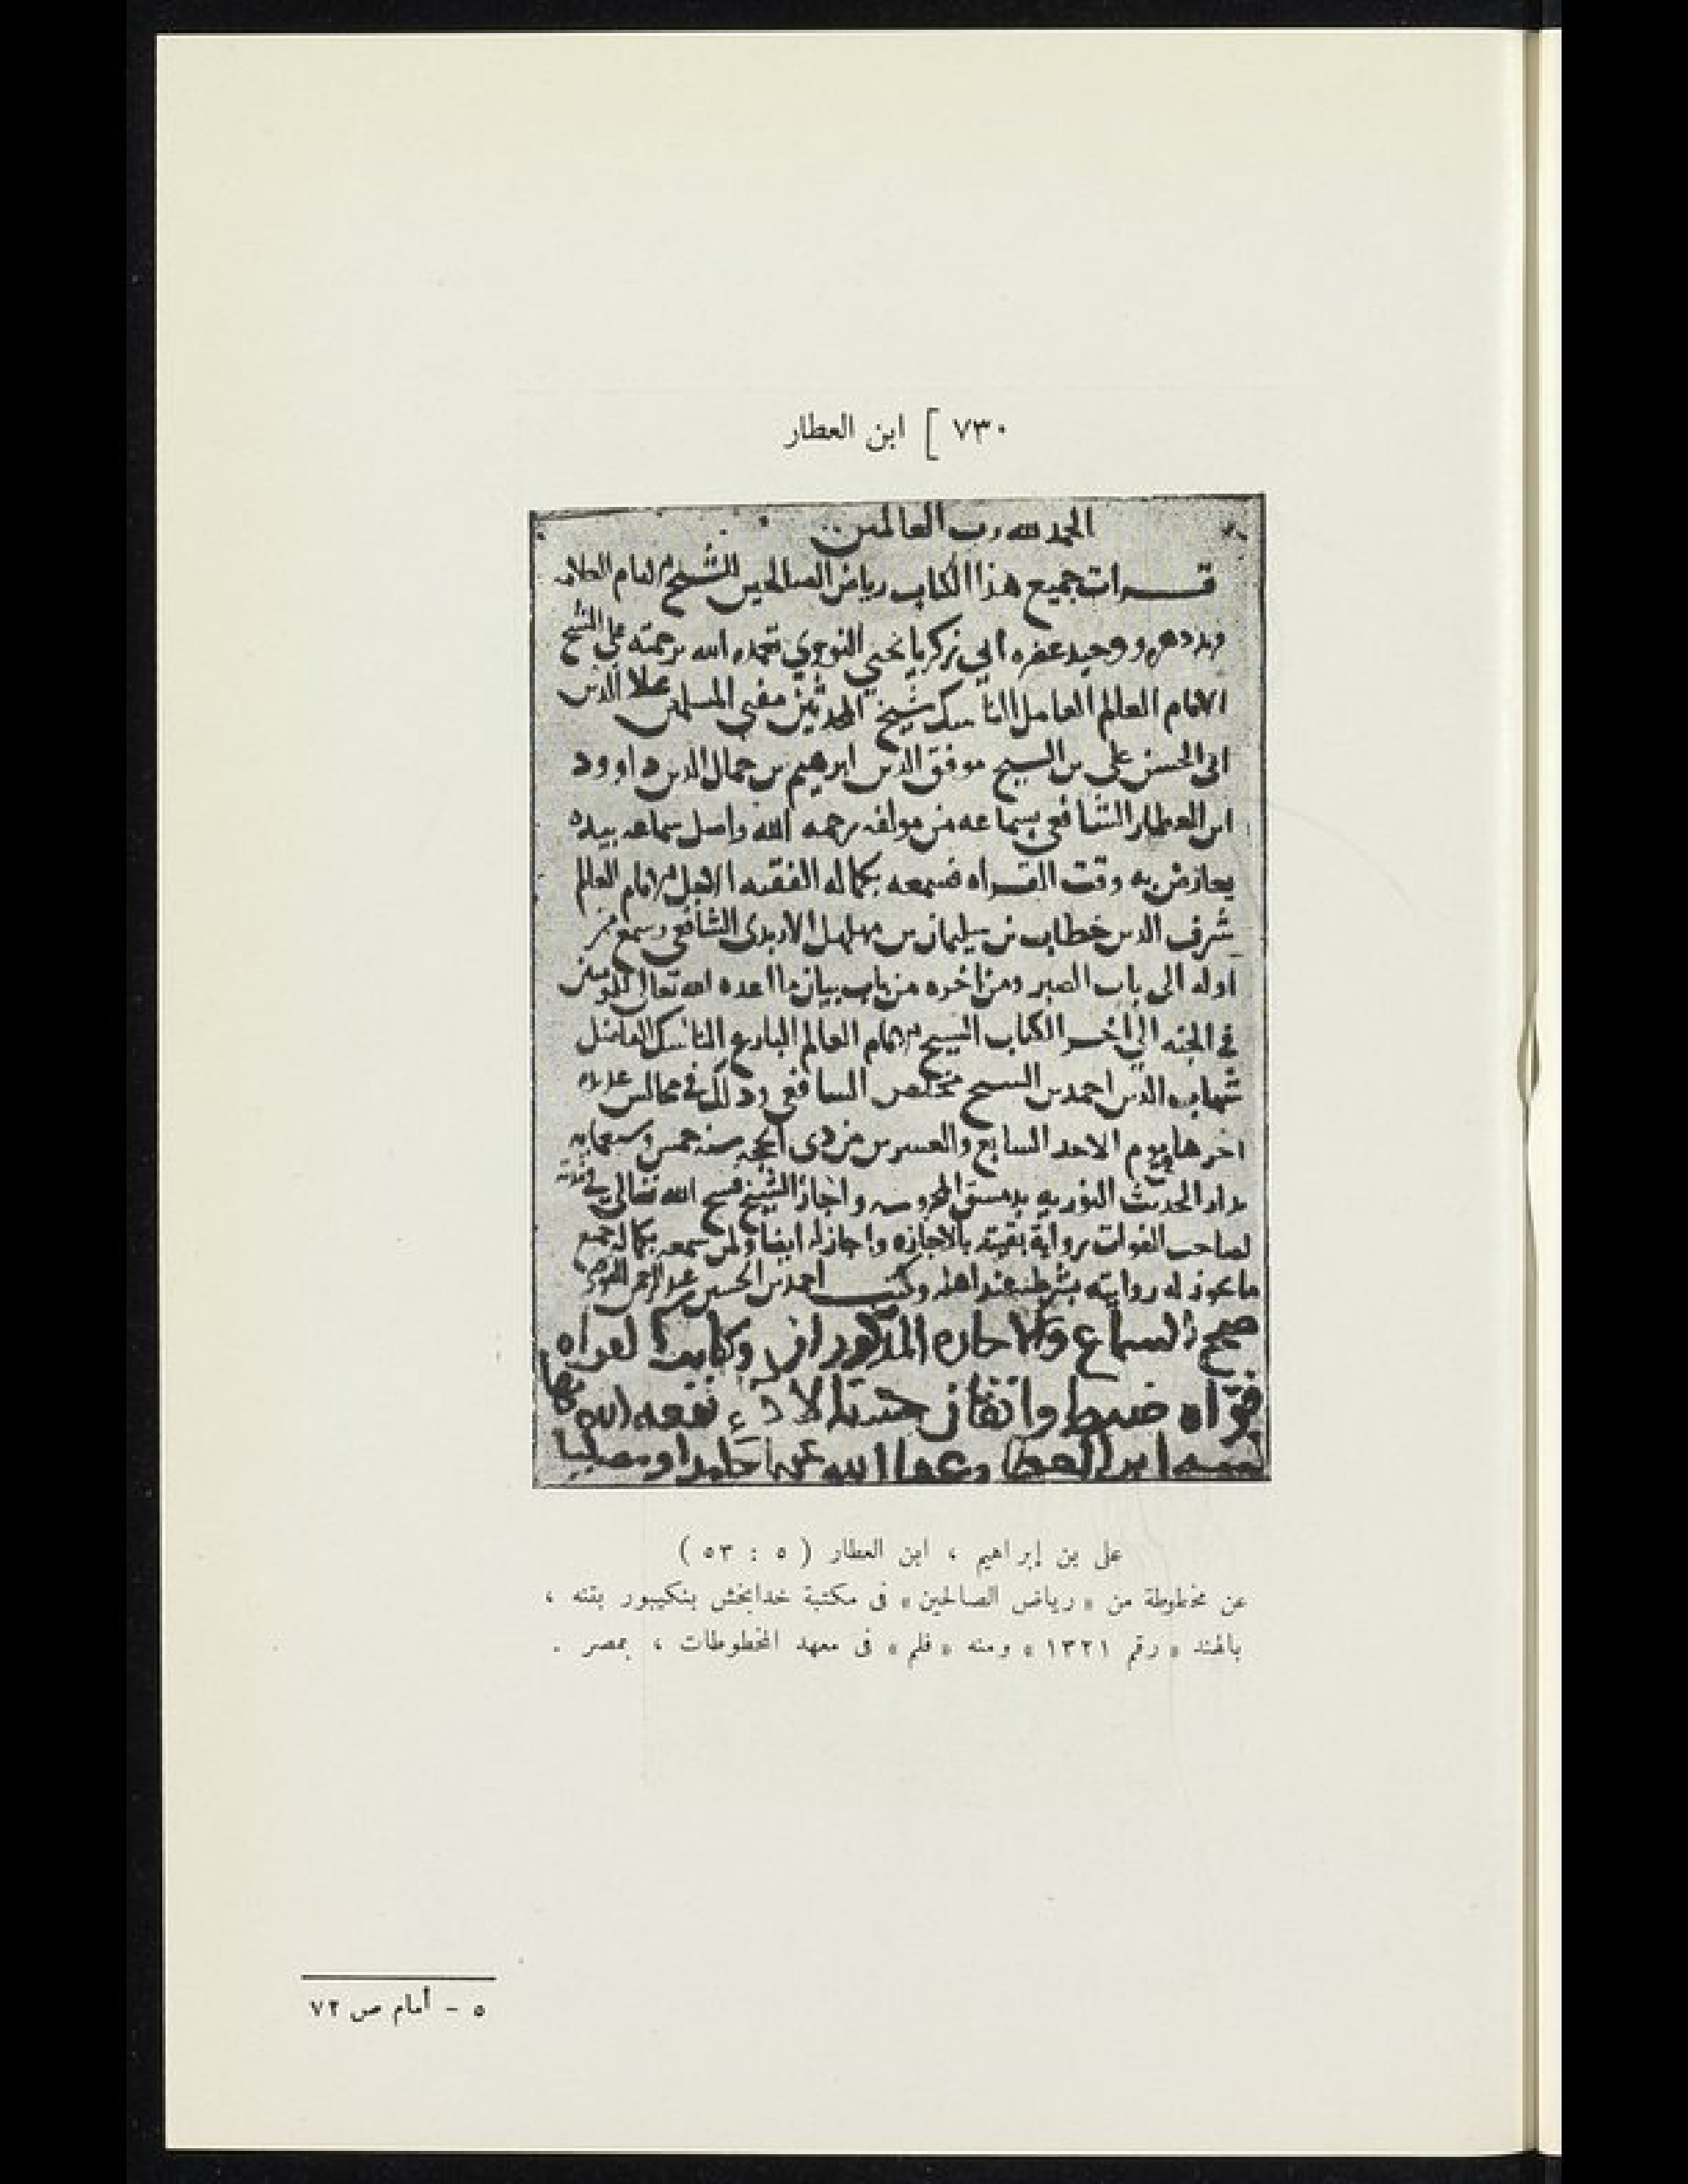 ٧٣٠ ] ابن العطار
الحمد لله رب العالمين
قرات جميع هذا الكتاب رياض الصالحين للشيخ الامام العلامه
دهره ووحيد عصره ابي زكريا يحيي النووي تغمده الله برحمته علي الشيخ
الامام العالم العامل الناسك شيخ المحدثين مفتي المسلمين علا الدين
ابي الحسن علي بن الشيخ موفق الدين ابرهيم بن جمال الدين داوود
ابن العطار الشافعي بسماعه من مولفه رحمه الله واصل سماعه بيده
يعارض به وقت القراه فسمعه بكماله الفقيه الاجل الامام العالم
شرف الدين خطاب بن سليمان بن مهلهل الاربدي الشافعي وسمع من
اوله الى باب الصبر ومن اخره من باب بيان ما اعده الله تعالى للمومنين
في الجنه الي اخر الكتاب الشيخ الامام العالم البارع الناسك الفاضل
شهاب الدين احمد بن الشيخ الشافعي وذلك في مجالس
اخرها يوم الاحد السابع والعشرين من ذي الحجه سنه خمس وسبعمايه
بدار الحديث النوريه بدمشق المحروسه واجاز الشيخ فسح الله تعالى في مدته
لصاحب الفوات برواية بقيته بالاجازه واجاز له ايضا ولمن سمعه بكماله جميع
ما يجوز له روايته بشرطه عند اهله وكتب احمد بن الحسين بن عبد الرحمن
صح السماع والاجازه المذكوران وكاتبها
قراه ضبط واتقان حسنة الاداء نفعه الله بها
كتبه ابن العطار عفا الله عنه حامدا ومصليا
على بن إبراهيم ، ابن العطار ( ٥ : ٥٣ )
عن مخطوطة من « رياض الصالحين » فى مكتبة خدابخش بنكيبور بتنه ،
بالهند « رقم ١٣٢١ » ومنه « فلم » فى معهد المخطوطات ، بمصر .
٥ - أمام ص ٧٢